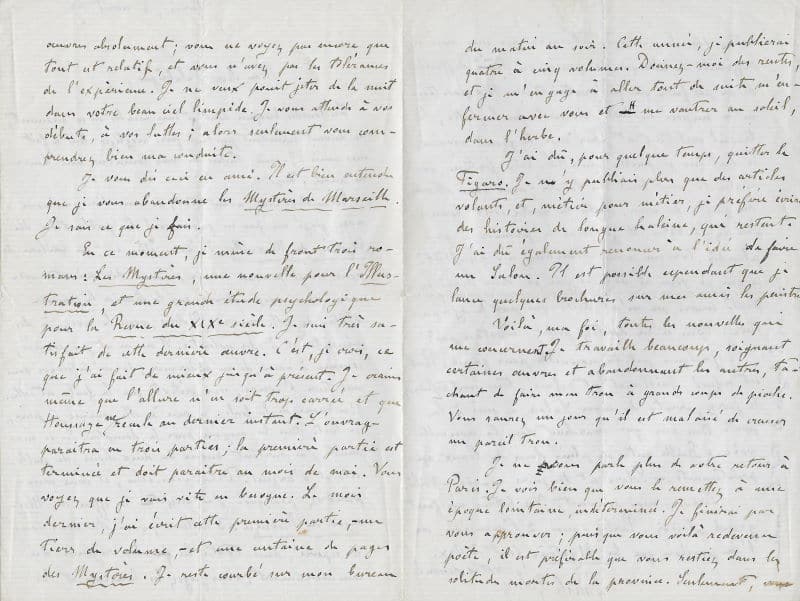 œuvres absolument ; vous ne voyez pas encore que
tout est relatif, et vous n'avez pas les tolérances
de l'expérience. Je ne veux point jeter de la nuit
dans votre beau ciel limpide. Je vous attends à vos
débuts, à vos luttes ; alors seulement vous com-
prendrez bien ma conduite.
Je vous dis ceci en ami. Il est bien entendu
que je vous abandonne les Mystères de Marseille.
Je sais ce que je fais.
En ce moment, je mène de front trois ro-
mans : Les Mystères, une nouvelle pour l'Illus-
tration, et une grande étude psychologique
pour la Revue du XIXe siècle. Je suis très sa-
tisfait de cette dernière œuvre. C'est, je crois, ce
que j'ai fait de mieux jusqu'à présent. Je crains
même que l'allure n'en soit trop carrée et que
Houssaye ne recule au dernier instant. L'ouvrage
paraîtra en trois parties ; la première partie est
terminée et doit paraître au mois de mai. Vous
voyez que je vais vite en besogne. Le mois
dernier, j'ai écrit cette première partie, - un
tiers de volume, - et une centaine de pages
des Mystères. Je reste courbé sur mon bureau
du matin au soir. Cette année, je publierai
quatre à cinq volumes. Donnez-moi des rentes,
et je m'engage à aller tout de suite m'en-
fermer avec vous et me vautrer au soleil,
dans l'herbe.
J'ai dû, pour quelque temps, quitter le
Figaro. Je n'y publiais plus que des articles
volants, et, métier pour métier, je préfère écrire
des histoires de longue haleine, qui restent.
J'ai dû également renoncer à l'idée de faire
un Salon. Il est possible cependant que je
lance quelques brochures sur mes amis les peintres
Voilà, ma foi, toutes les nouvelles qui
me concernent. Je travaille beaucoup, soignant
certaines œuvres et abandonnant les autres, tâ-
chant de faire mon trou à grands coups de pioche.
Vous saurez un jour qu'il est malaisé de creuser
un pareil trou.
Je ne vous parle plus de votre retour à
Paris. Je vois bien que vous le remettez à une
époque lointaine, indéterminée. Je finirai par
vous approuver ; puisque vous voilà redevenu
poète, il est préférable que vous restiez dans les
solitudes mortes de la province. Seulement,